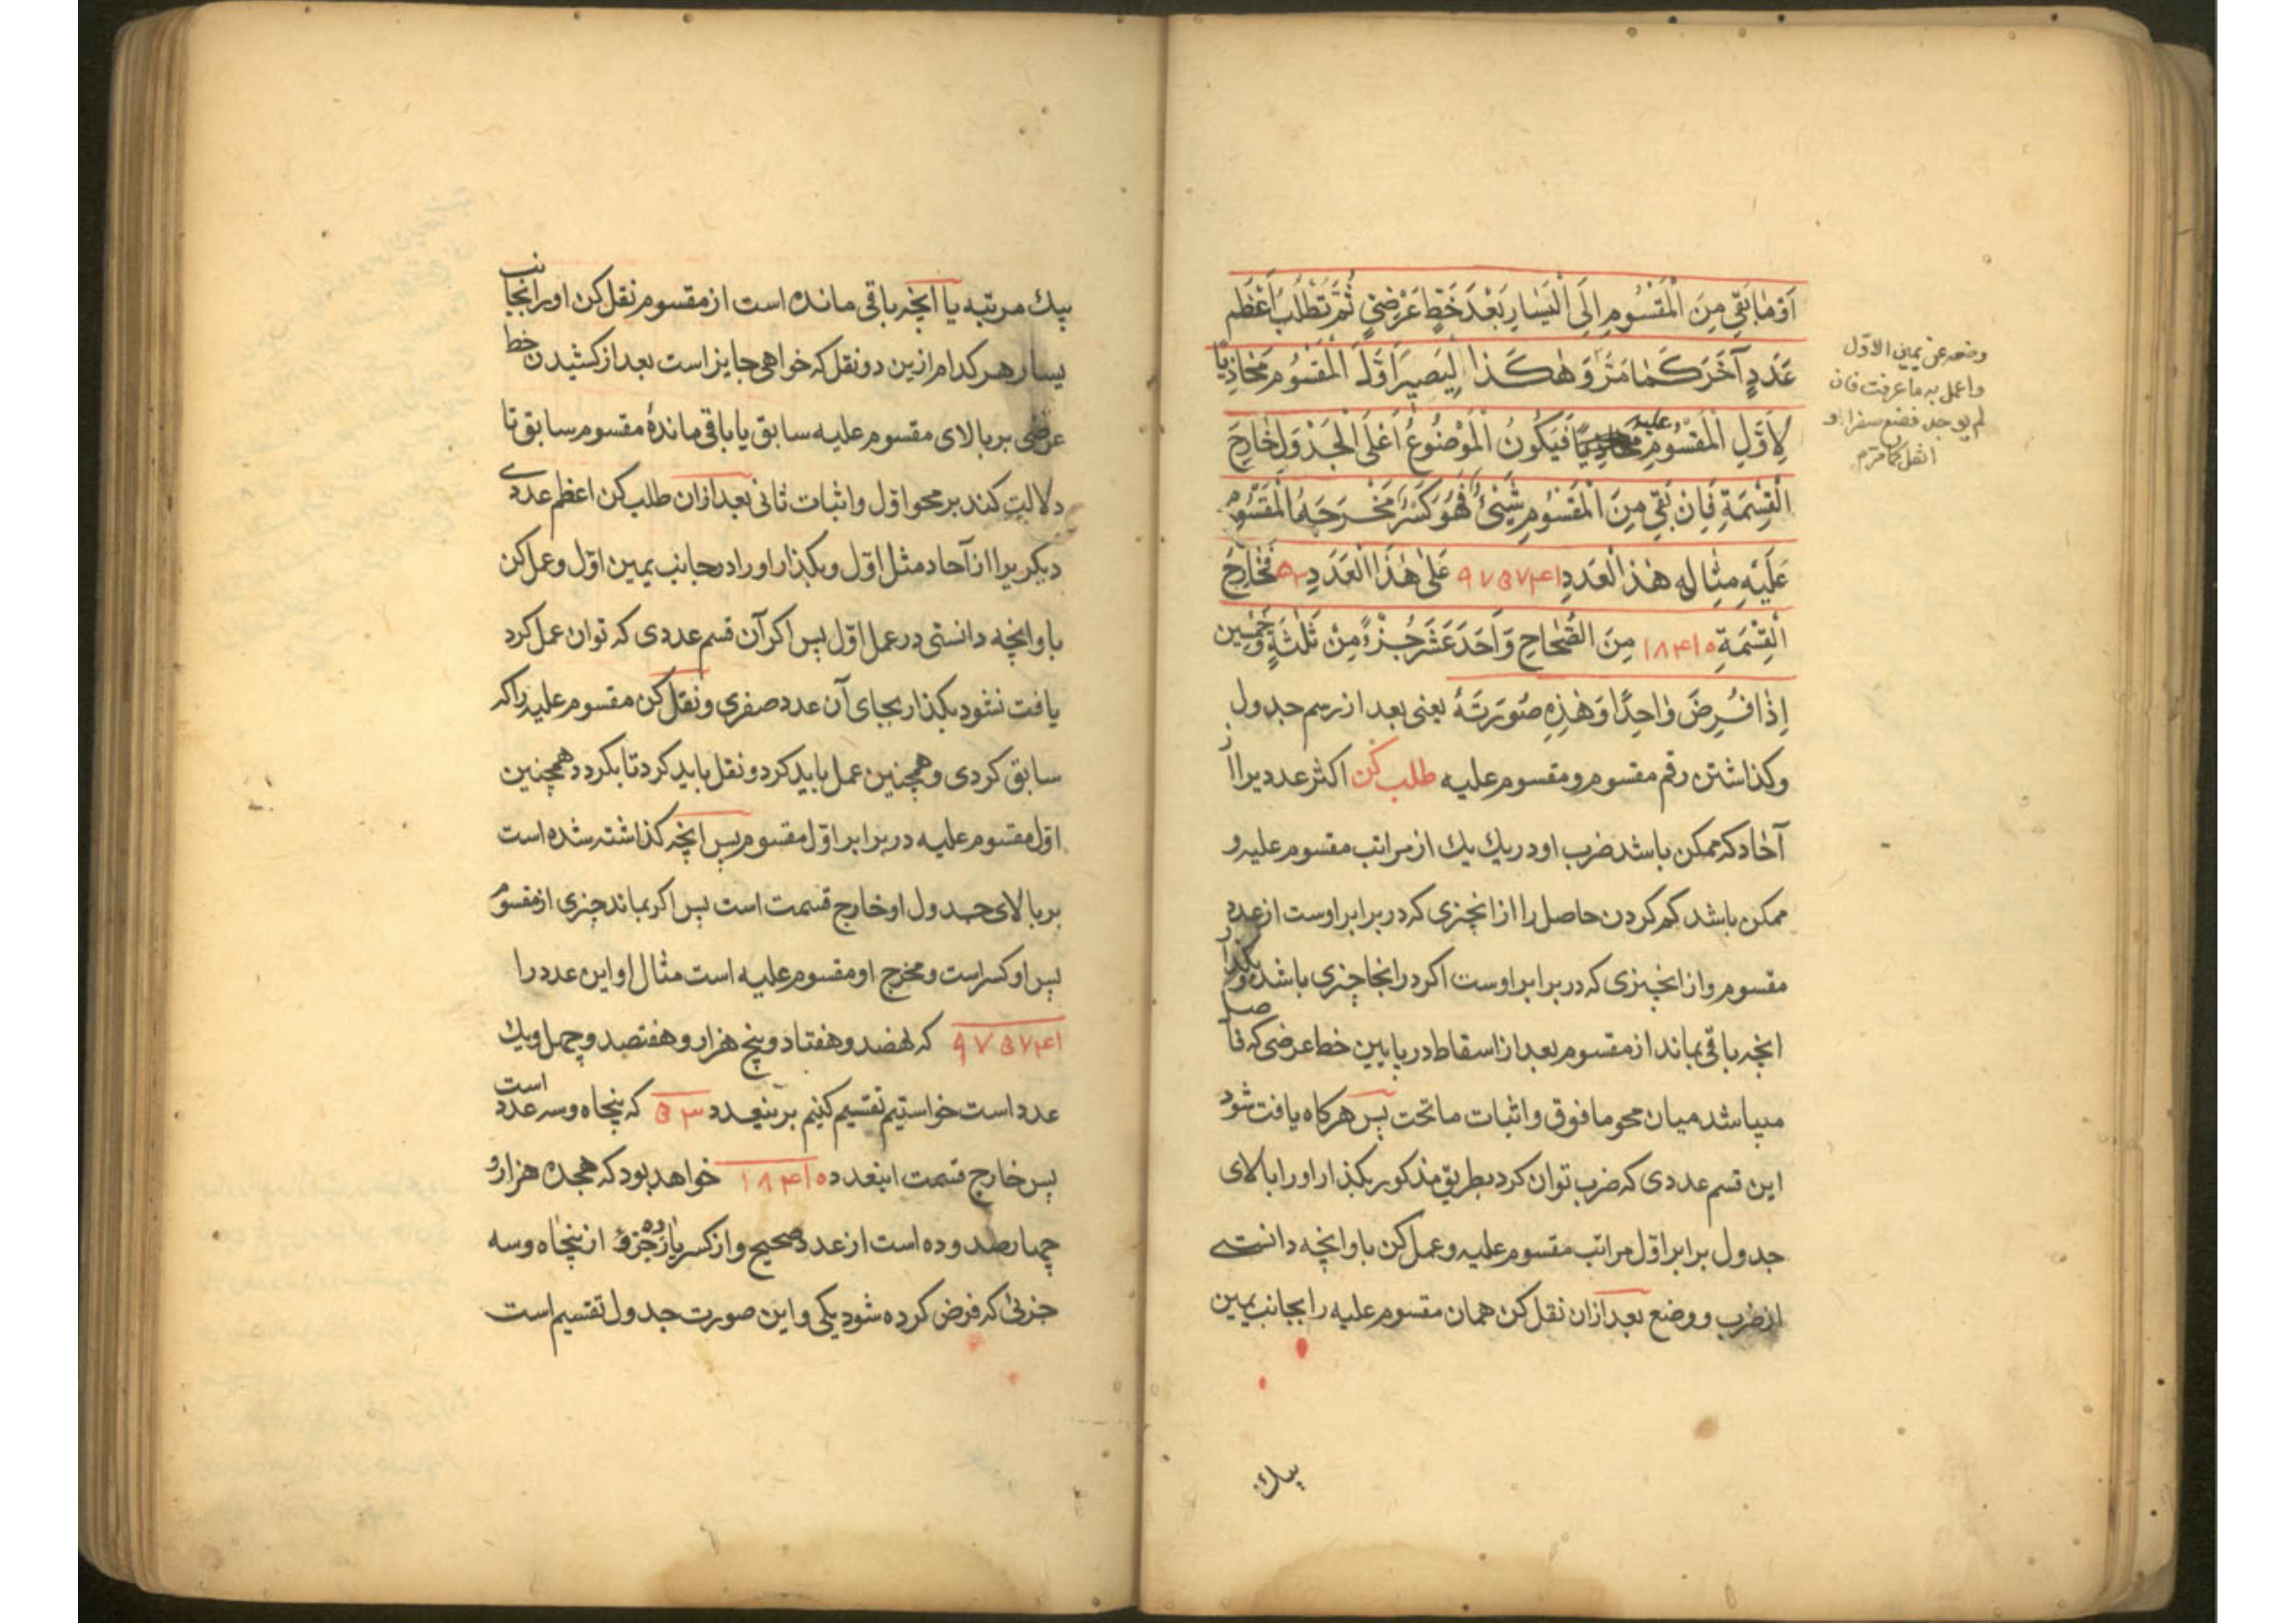 اَوْ مٰا بَقِيَ مِنَ الْمَقْسُومِ اِلَى الْيَسٰارِ بَعْدَ خَطٍّ عَرْضِيٍّ ثُمَّ تَطْلُبُ اَعْظَمَ
عَدَدٍ آخَرَ كَمٰا مَرَّ وَ هٰكَذٰا لِيَصِيرَ اَوَّلُ الْمَقْسُومِ مُحٰاذِيًا
لِاَوَّلِ الْمَقْسُومِ عليه فَيَكُونُ الْمَوْضُوعُ اَعْلَى الْجَدْوَلِ خٰارِجَ
الْقِسْمَةِ فَاِنْ بَقِيَ مِنَ الْمَقْسُومِ شَيْئٌ فَهُوَ كَسْرٌ مَخْرَجُهُ الْمَقْسُومُ
عَلَيْهِ مِثٰالُه هٰذَا الْعَدَدِ ۹۷۵۷۴۱ عَلٰى هٰذَا الْعَدَدِ ۵۳ فَخٰارِجُ
الْقِسْمَةِ ۱۸۴۱۰ مِنَ الصِّحٰاحِ وَ اَحَدَ عَشَرَ جُزْءً مِنْ ثَلٰثَةٍ وَ خَمْسِين
اِذٰا فُرِضَ وٰاحِدًا وَ هٰذِهِ صُورَتُهُ يعنى بعد از رسم جدول
و كذاشتن رقم مقسوم و مقسوم عليه طلب كن اكثر عدديرا از
آحاد كه ممكن باشد ضرب او در يك يك از مراتب مقسوم عليه و
ممكن باشد كم كردن حاصل را از انچيزى كه در برابر اوست از عدد
مقسوم و از انچيزى كه در برابر اوست اكر در انجا چيزى باشد و بكذار
انچه باقى بماند از مقسوم بعد از اسقاط در پايين خط عرضى كه فاصله
ميباشد ميان محو ما فوق و اثبات ما تحت پس هركاه يافت شود
اين قسم عددى كه ضرب توان كرد بطريق مذكور بكذار او را بالاى
جدول برابر اول مراتب مقسوم عليه و عمل كن با او انچه دانستى
از ضرب و وضع بعد ازان نقل كن همان مقسوم عليه را بجانب يمين
بيك
وضعه عن يمين الاول
واعمل به ما عرفت فان
لم يوجد فضع صفرا و
انقل كما مر
بيك مرتبه يا انچه باقى مانده است از مقسوم نقل كن او را بجانب
يسار هر كدام ازين دو نقل كه خواهى جايز است بعد از كشيدن خط
عرضى بر بالاى مقسوم عليه سابق يا باقى ماندهٔ مقسوم سابق تا
دلالت كند بر محو اول و اثبات ثانى بعد ازان طلب كن اعظم عددى
ديكر يرا از آحاد مثل اول و بكذار او را در جانب يمين اول و عمل كن
با او انچه دانستى در عمل اول پس اكر آن قسم عددى كه توان عمل كرد
يافت نشود بكذار بجاى آن عدد صفرى و نقل كن مقسوم عليه را كه
سابق كردى و همچنين عمل بايد كرد و نقل بايد كرد تا بكردد همچنين
اول مقسوم عليه در برابر اول مقسوم پس انچه كذاشته شده است
بر بالاى جدول او خارج قسمت است پس اكر بماند چيزى از مقسوم
پس او كسر است و مخرج او مقسوم عليه است مثال او اين عدد را
۹۷۵۷۴۱ كه نهصد و هفتاد و پنج هزار و هفتصد و چهل و يك
عدد است خواستيم تقسيم كنيم بر ينعدد ۵۳ كه پنجاه و سه عدد است
پس خارج قسمت اينعدد ۱۸۴۱۰ خواهد بود كه هجده هزار و
چهارصد و ده است از عدد صحيح و از كسر يازده جزؤ از پنجاه و سه
جزئى كه فرض كرده شود يكى و اين صورت جدول تقسيم است